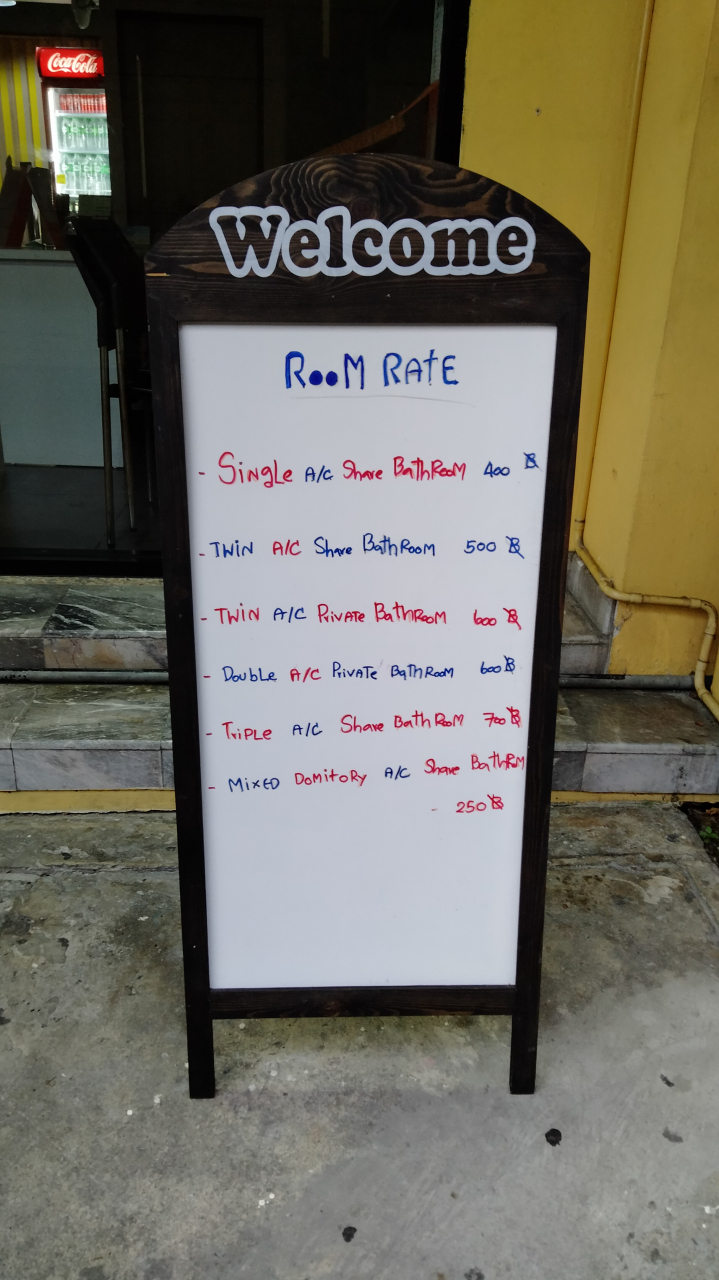 Coca-Cola
Welcome
ROOM RATE
- SINGLE A/C Share BathRooM 400 ฿
- TWIN A/C Share BathRooM 500 ฿
- TWIN A/C PRIVATE BathRooM 600 ฿
- DoubLE A/C PRIVATE BATHROOM 600 ฿
- TRiPLE A/C Share BathRooM 700 ฿
- MixED DoMitoRy A/C Share BathRoM
- 250 ฿